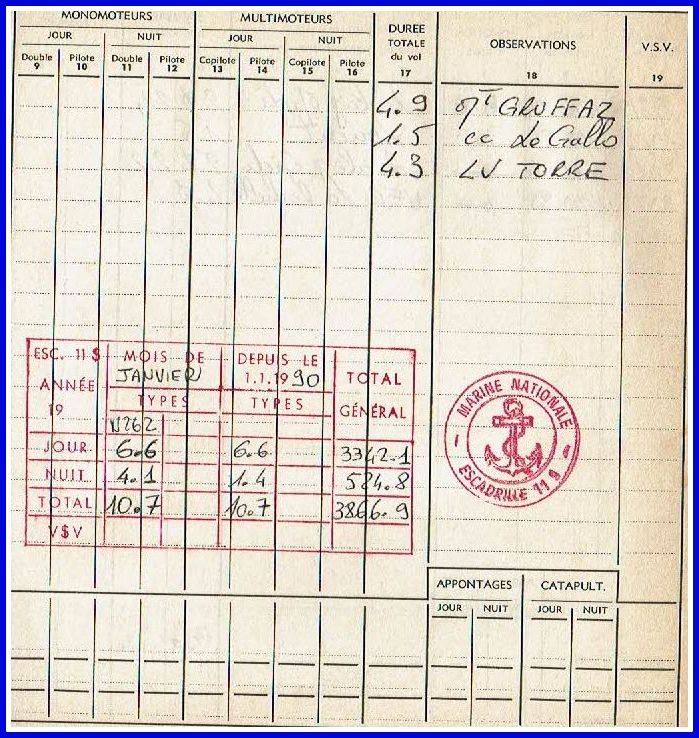 MONOMOTEURS MULTIMOTEURS DURÉE TOTALE du vol OBSERVATIONS V.S.V.
JOUR NUIT JOUR NUIT
Double Pilote Double Pilote Copilote Pilote Copilote Pilote
9 10 11 12 13 14 15 16 17 18 19
4.9 GRUFFAZ
1.5 cc Le Gallo
4.3 LV TORRE
ESC. 11 S MOIS DE DEPUIS LE
JANVIER 1.1.1990 TOTAL
ANNÉE TYPES TYPES
19 GÉNÉRAL
N262
JOUR 6.6 6.6 3342.1
NUIT 4.1 1.4 524.8
TOTAL 10.7 10.7 3866.9
V$V
MARINE NATIONALE
ESCADRILLE 11 S
APPONTAGES CATAPULT.
JOUR NUIT JOUR NUIT